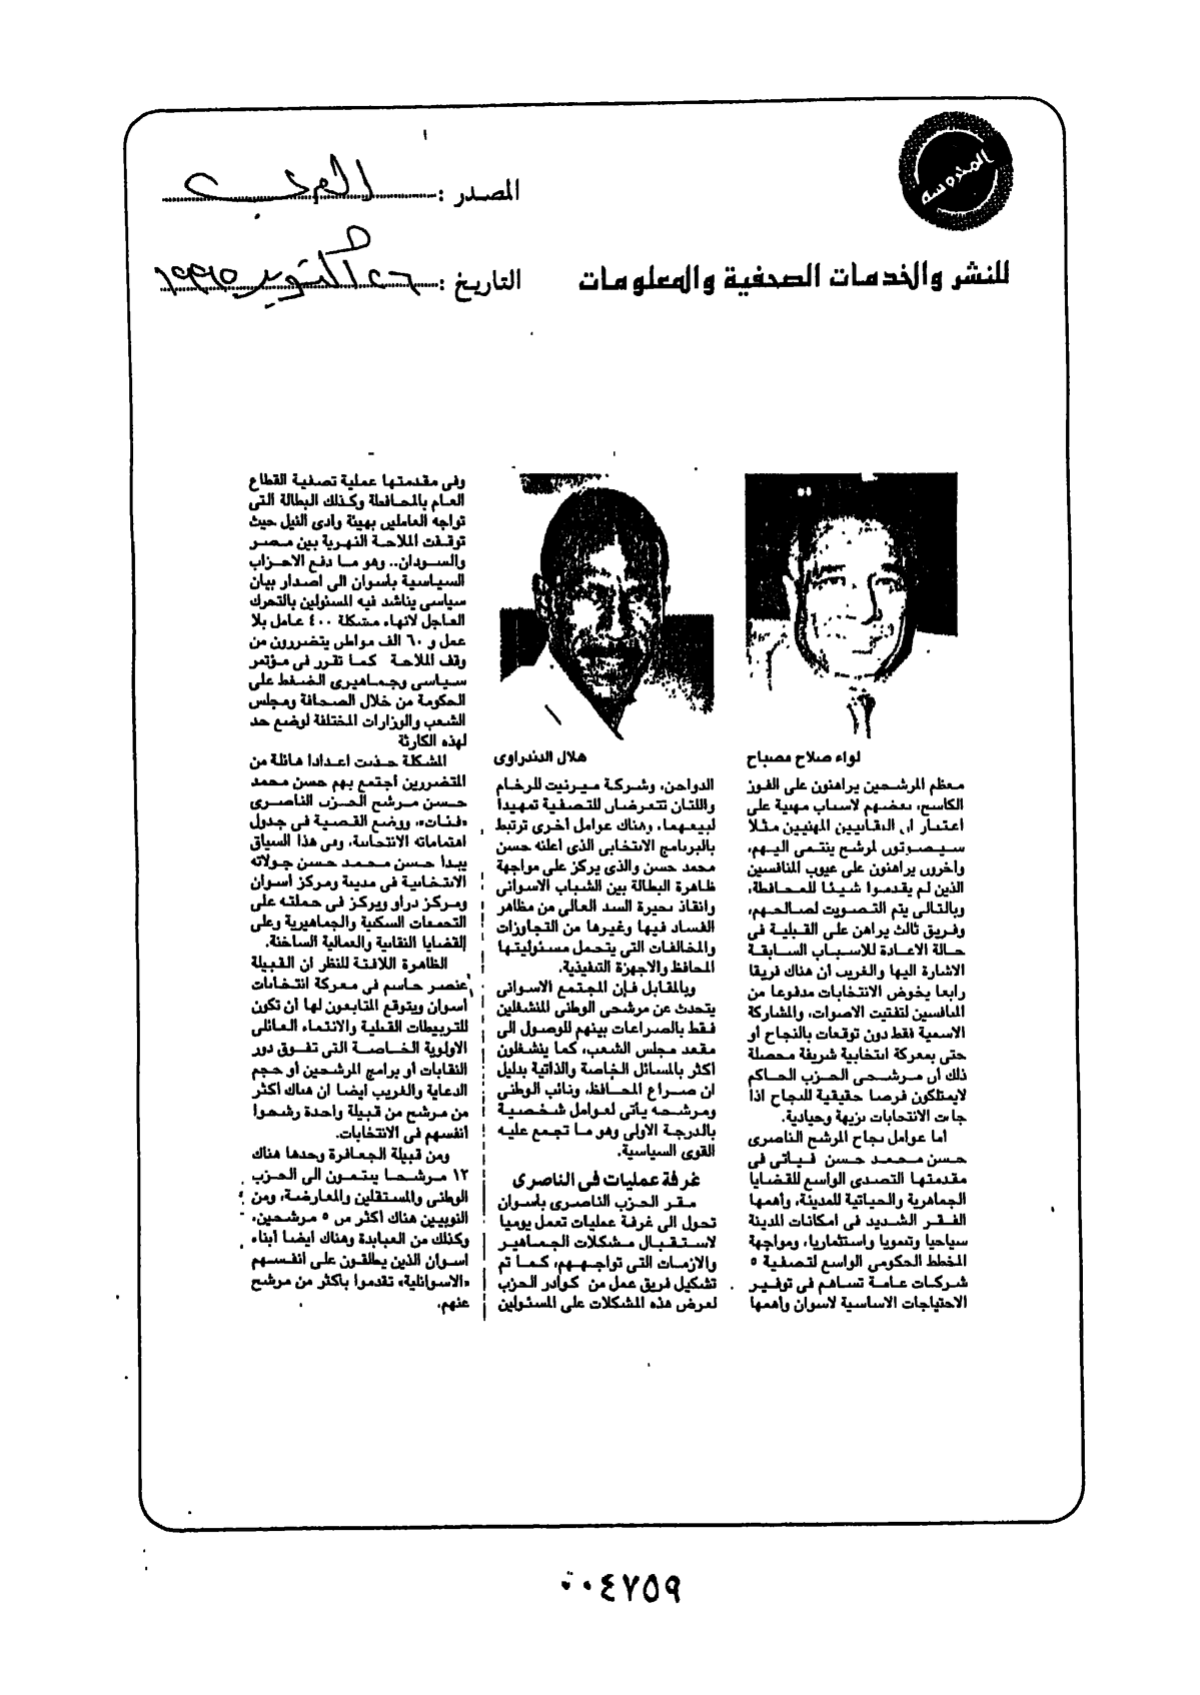 المحروسة
المصدر : العربى
للنشر والخدمات الصحفية والمعلومات
التاريخ : ٢٦ أكتوبر ١٩٩٥
لواء صلاح مصباح
معظم المرشحين يراهنون على الفوز
الكاسح، بعضهم لاسباب مهنية على
اعتبار ان النقابيين المهنيين مثلا
سيصوتون لمرشح ينتمى اليهم،
واخرون يراهنون على عيوب المنافسين
الذين لم يقدموا شيئا للمحافظة،
وبالتالى يتم التصويت لصالحهم،
وفريق ثالث يراهن على القبلية فى
حالة الاعادة للاسباب السابقة
الاشارة اليها والغريب أن هناك فريقا
رابعا يخوض الانتخابات مدفوعا من
المنافسين لتفتيت الاصوات، والمشاركة
الاسمية فقط دون توقعات بالنجاح أو
حتى بمعركة انتخابية شريفة محصلة
ذلك أن مرشحى الحزب الحاكم
لايمتلكون فرصا حقيقية للنجاح اذا
جاءت الانتخابات نزيهة وحيادية.
أما عوامل نجاح المرشح الناصرى
حسن محمد حسن فيأتى فى
مقدمتها التصدى الواسع للقضايا
الجماهرية والحياتية للمدينة، وأهمها
الفقر الشديد فى امكانات المدينة
سياحيا وتنمويا واستثماريا، ومواجهة
المخطط الحكومى الواسع لتصفية ٥
شركات عامة تساهم فى توفير
الاحتياجات الاساسية لاسوان وأهمها
هلال الدندراوى
الدواجن، وشركة ميرنيت للرخام
واللتان تتعرضان للتصفية تمهيداً
لبيعهما، وهناك عوامل أخرى ترتبط
بالبرنامج الانتخابى الذى أعلنه حسن
محمد حسن والذى يركز على مواجهة
ظاهرة البطالة بين الشباب الاسوانى
وانقاذ بحيرة السد العالى من مظاهر
الفساد فيها وغيرها من التجاوزات
والمخالفات التى يتحمل مسئوليتها
المحافظ والاجهزة التنفيذية.
وبالمقابل فإن المجتمع الاسوانى
يتحدث عن مرشحى الوطنى المنشغلين
فقط بالصراعات بينهم للوصول الى
مقعد مجلس الشعب، كما ينشغلون
أكثر بالمسائل الخاصة والذاتية بدليل
ان صراع المحافظ، ونائب الوطنى
ومرشحه يأتى لعوامل شخصية
بالدرجة الاولى وهو ما تجمع عليه
القوى السياسية.
غرفة عمليات فى الناصرى
مقر الحزب الناصرى بأسوان
تحول الى غرفة عمليات تعمل يوميا
لاستقبال مشكلات الجماهير
والازمات التى تواجههم، كما تم
تشكيل فريق عمل من كوادر الحزب
لعرض هذه المشكلات على المسئولين
وفى مقدمتها عملية تصفية القطاع
العام بالمحافظة وكذلك البطالة التى
تواجه العاملين بهيئة وادى النيل حيث
توقفت الملاحة النهرية بين مصر
والسودان.. وهو ما دفع الاحزاب
السياسية بأسوان الى اصدار بيان
سياسى يناشد فيه المسئولين بالتحرك
العاجل لانهاء مشكلة ٤٠٠ عامل بلا
عمل و ٦٠ الف مواطن يتضررون من
وقف الملاحة كما تقرر فى مؤتمر
سياسى وجماهيرى الضغط على
الحكومة من خلال الصحافة ومجلس
الشعب والوزارات المختلفة لوضع حد
لهذه الكارثة
المشكلة جذبت اعدادا هائلة من
المتضررين اجتمع بهم حسن محمد
حسن مرشح الحزب الناصرى
«فئات»، ووضع القضية فى جدول
اهتماماته الانتخابية، وفى هذا السياق
يبدأ حسن محمد حسن جولاته
الانتخابية فى مدينة ومركز أسوان
ومركز دراو ويركز فى حملته على
التجمعات السكنية والجماهيرية وعلى
القضايا النقابية والعمالية الساخنة.
الظاهرة اللافتة للنظر ان القبيلة
عنصر حاسم فى معركة انتخابات
أسوان ويتوقع المتابعون لها أن تكون
للتربيطات القبلية والانتماء العائلى
الاولوية الخاصة التى تفوق دور
النقابات أو برامج المرشحين أو حجم
الدعاية والغريب ايضا ان هناك أكثر
من مرشح من قبيلة واحدة رشحوا
أنفسهم فى الانتخابات.
ومن قبيلة الجعافرة وحدها هناك
١٢ مرشحا ينتمون الى الحزب
الوطنى والمستقلين والمعارضة، ومن
النوبيين هناك أكثر من ٥ مرشحين،
وكذلك من العبابدة وهناك ايضا أبناء
اسوان الذين يطلقون على انفسهم
«الاسوانلية» تقدموا بأكثر من مرشح
عنهم.
٠٠٤٧٥٩